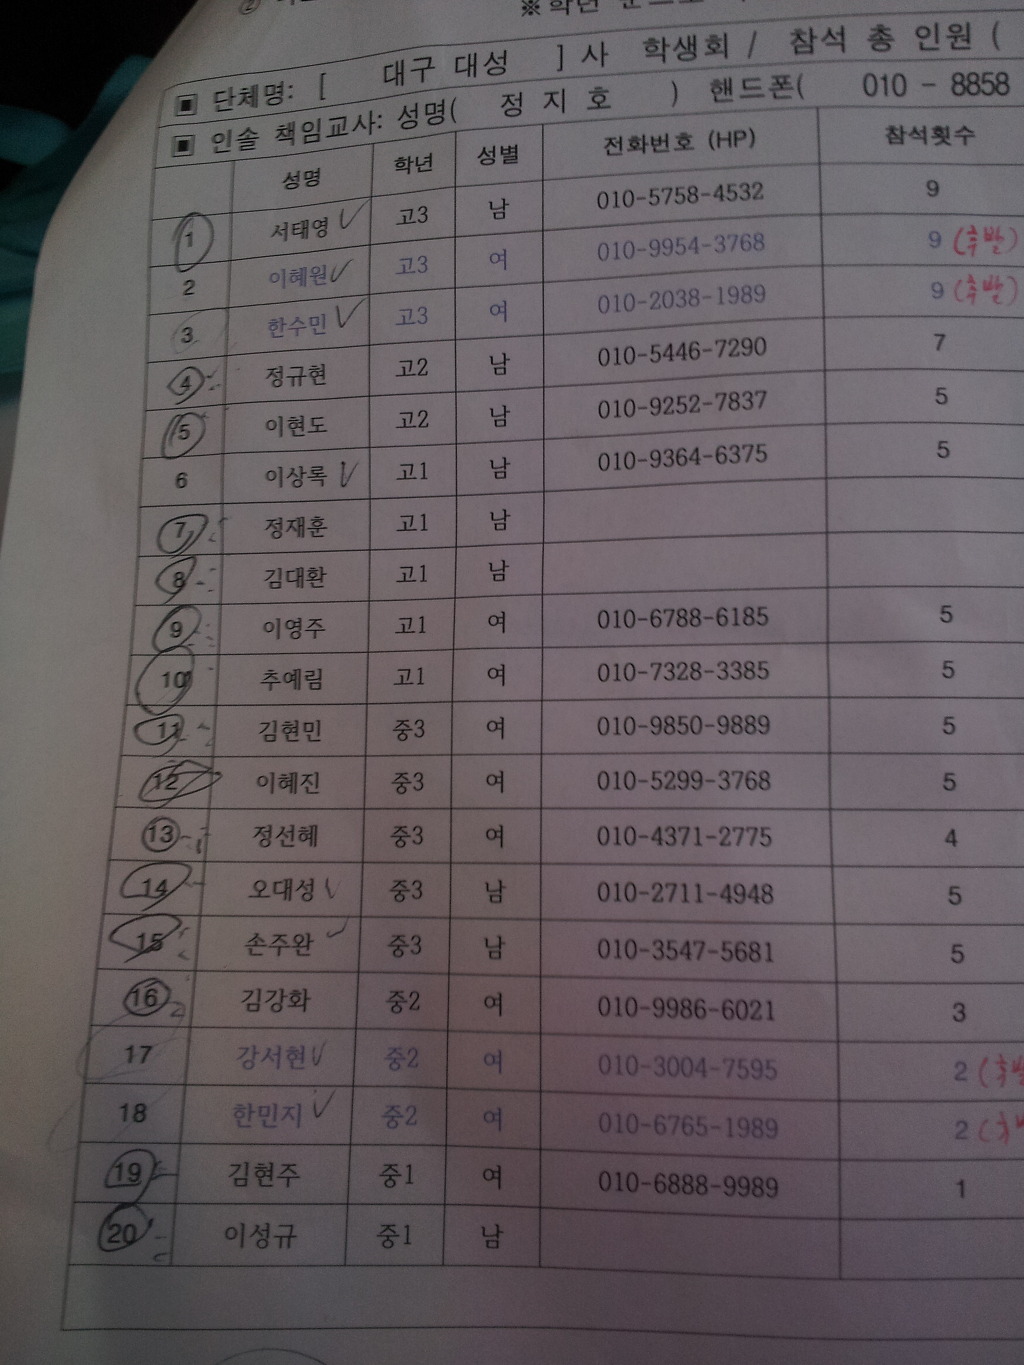 ■ 단체명: [ 대구 대성 ] 사 학생회 / 참석 총 인원 (
■ 인솔 책임교사: 성명( 정 지 호 ) 핸드폰( 010 - 8858
성명 학년 성별 전화번호 (HP) 참석횟수
1 서태영 고3 남 010-5758-4532 9
2 이혜원 고3 여 010-9954-3768 9 (후발)
3 한수민 고3 여 010-2038-1989 9 (후발)
4 정규현 고2 남 010-5446-7290 7
5 이현도 고2 남 010-9252-7837 5
6 이상록 고1 남 010-9364-6375 5
7 정재훈 고1 남
8 김대환 고1 남
9 이영주 고1 여 010-6788-6185 5
10 추예림 고1 여 010-7328-3385 5
11 김현민 중3 여 010-9850-9889 5
12 이혜진 중3 여 010-5299-3768 5
13 정선혜 중3 여 010-4371-2775 4
14 오대성 중3 남 010-2711-4948 5
15 손주완 중3 남 010-3547-5681 5
16 김강화 중2 여 010-9986-6021 3
17 강서현 중2 여 010-3004-7595 2 (후발
18 한민지 중2 여 010-6765-1989 2 (
19 김현주 중1 여 010-6888-9989 1
20 이성규 중1 남